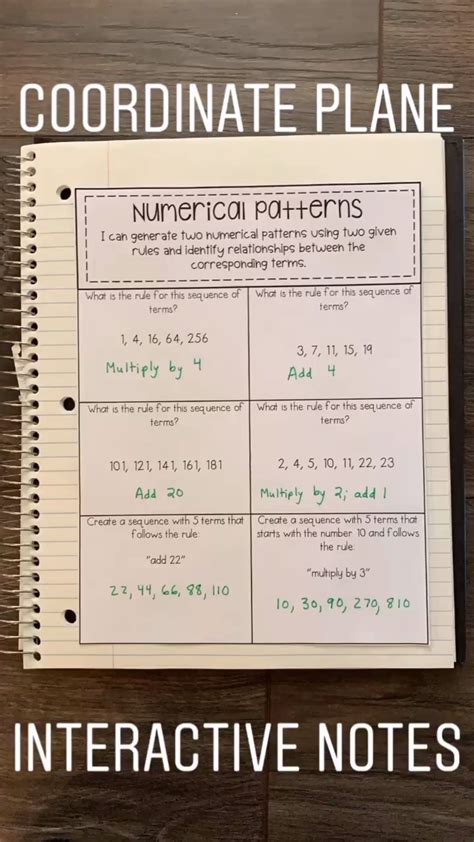 COORDINATE PLANE
Numerical Patterns
I can generate two numerical patterns using two given
rules and identify relationships between the
corresponding terms.
What is the rule for this sequence of
terms?
1, 4, 16, 64, 256
Multiply by 4
What is the rule for this sequence of
terms?
3, 7, 11, 15, 19
Add 4
What is the rule for this sequence of
terms?
101, 121, 141, 161, 181
Add 20
What is the rule for this sequence of
terms?
2, 4, 5, 10, 11, 22, 23
Multiply by 2; add 1
Create a sequence with 5 terms that
follows the rule:
"add 22"
22, 44, 66, 88, 110
Create a sequence with 5 terms that
starts with the number 10 and follows
the rule:
"multiply by 3"
10, 30, 90, 270, 810
INTERACTIVE NOTES